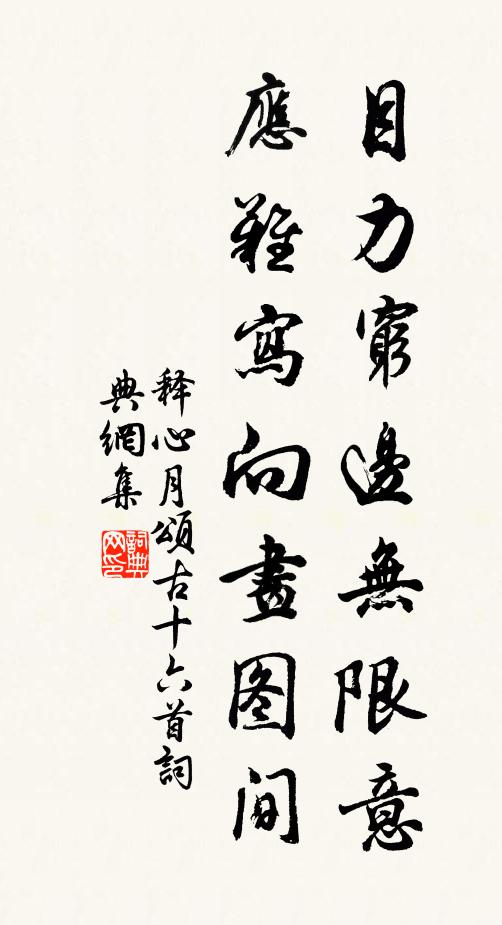 目力窮邊無限意
應難寫向畫图間
释心月頌古十六首詞
典網集
詞典网印